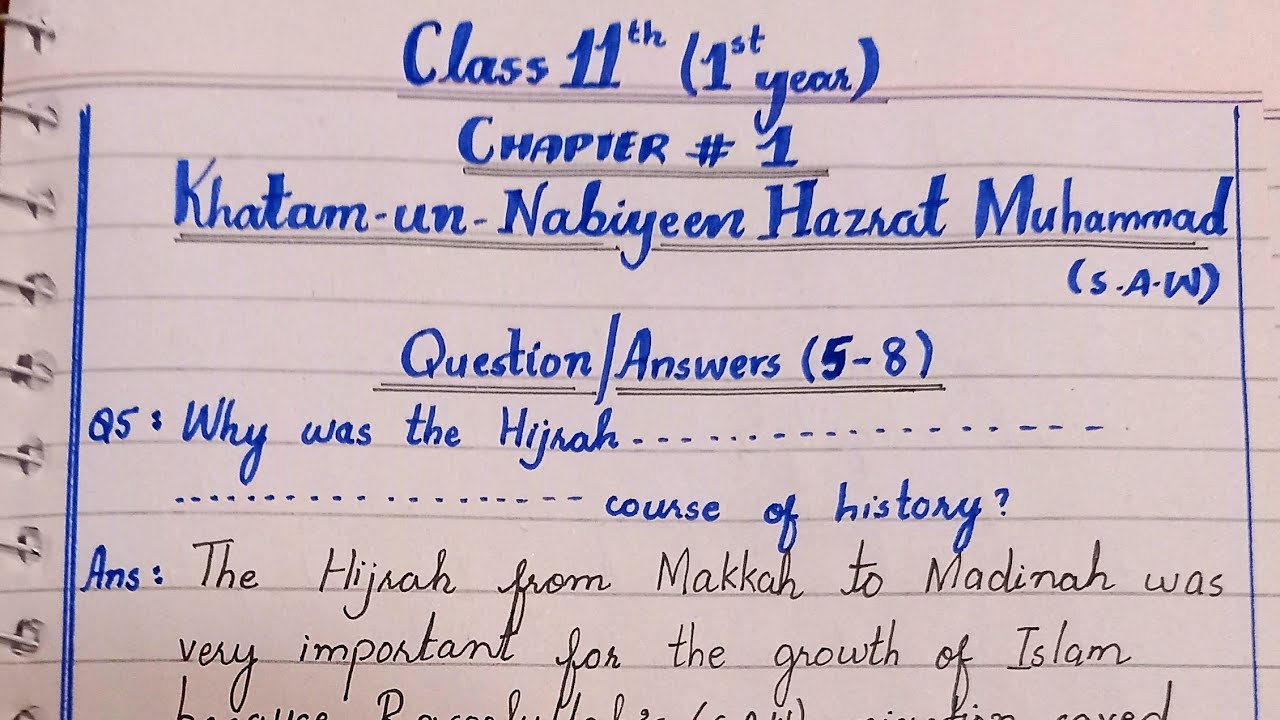 Class 11th (1st year)
CHAPTER # 1
Khatam-un-Nabiyeen Hazrat Muhammad
(S.A.W)
Question/Answers (5-8)
Q5: Why was the Hijrah..................
.................... course of history?
Ans: The Hijrah from Makkah to Madinah was
very important for the growth of Islam
because Rasoolullah's (S.A.W) migration saved